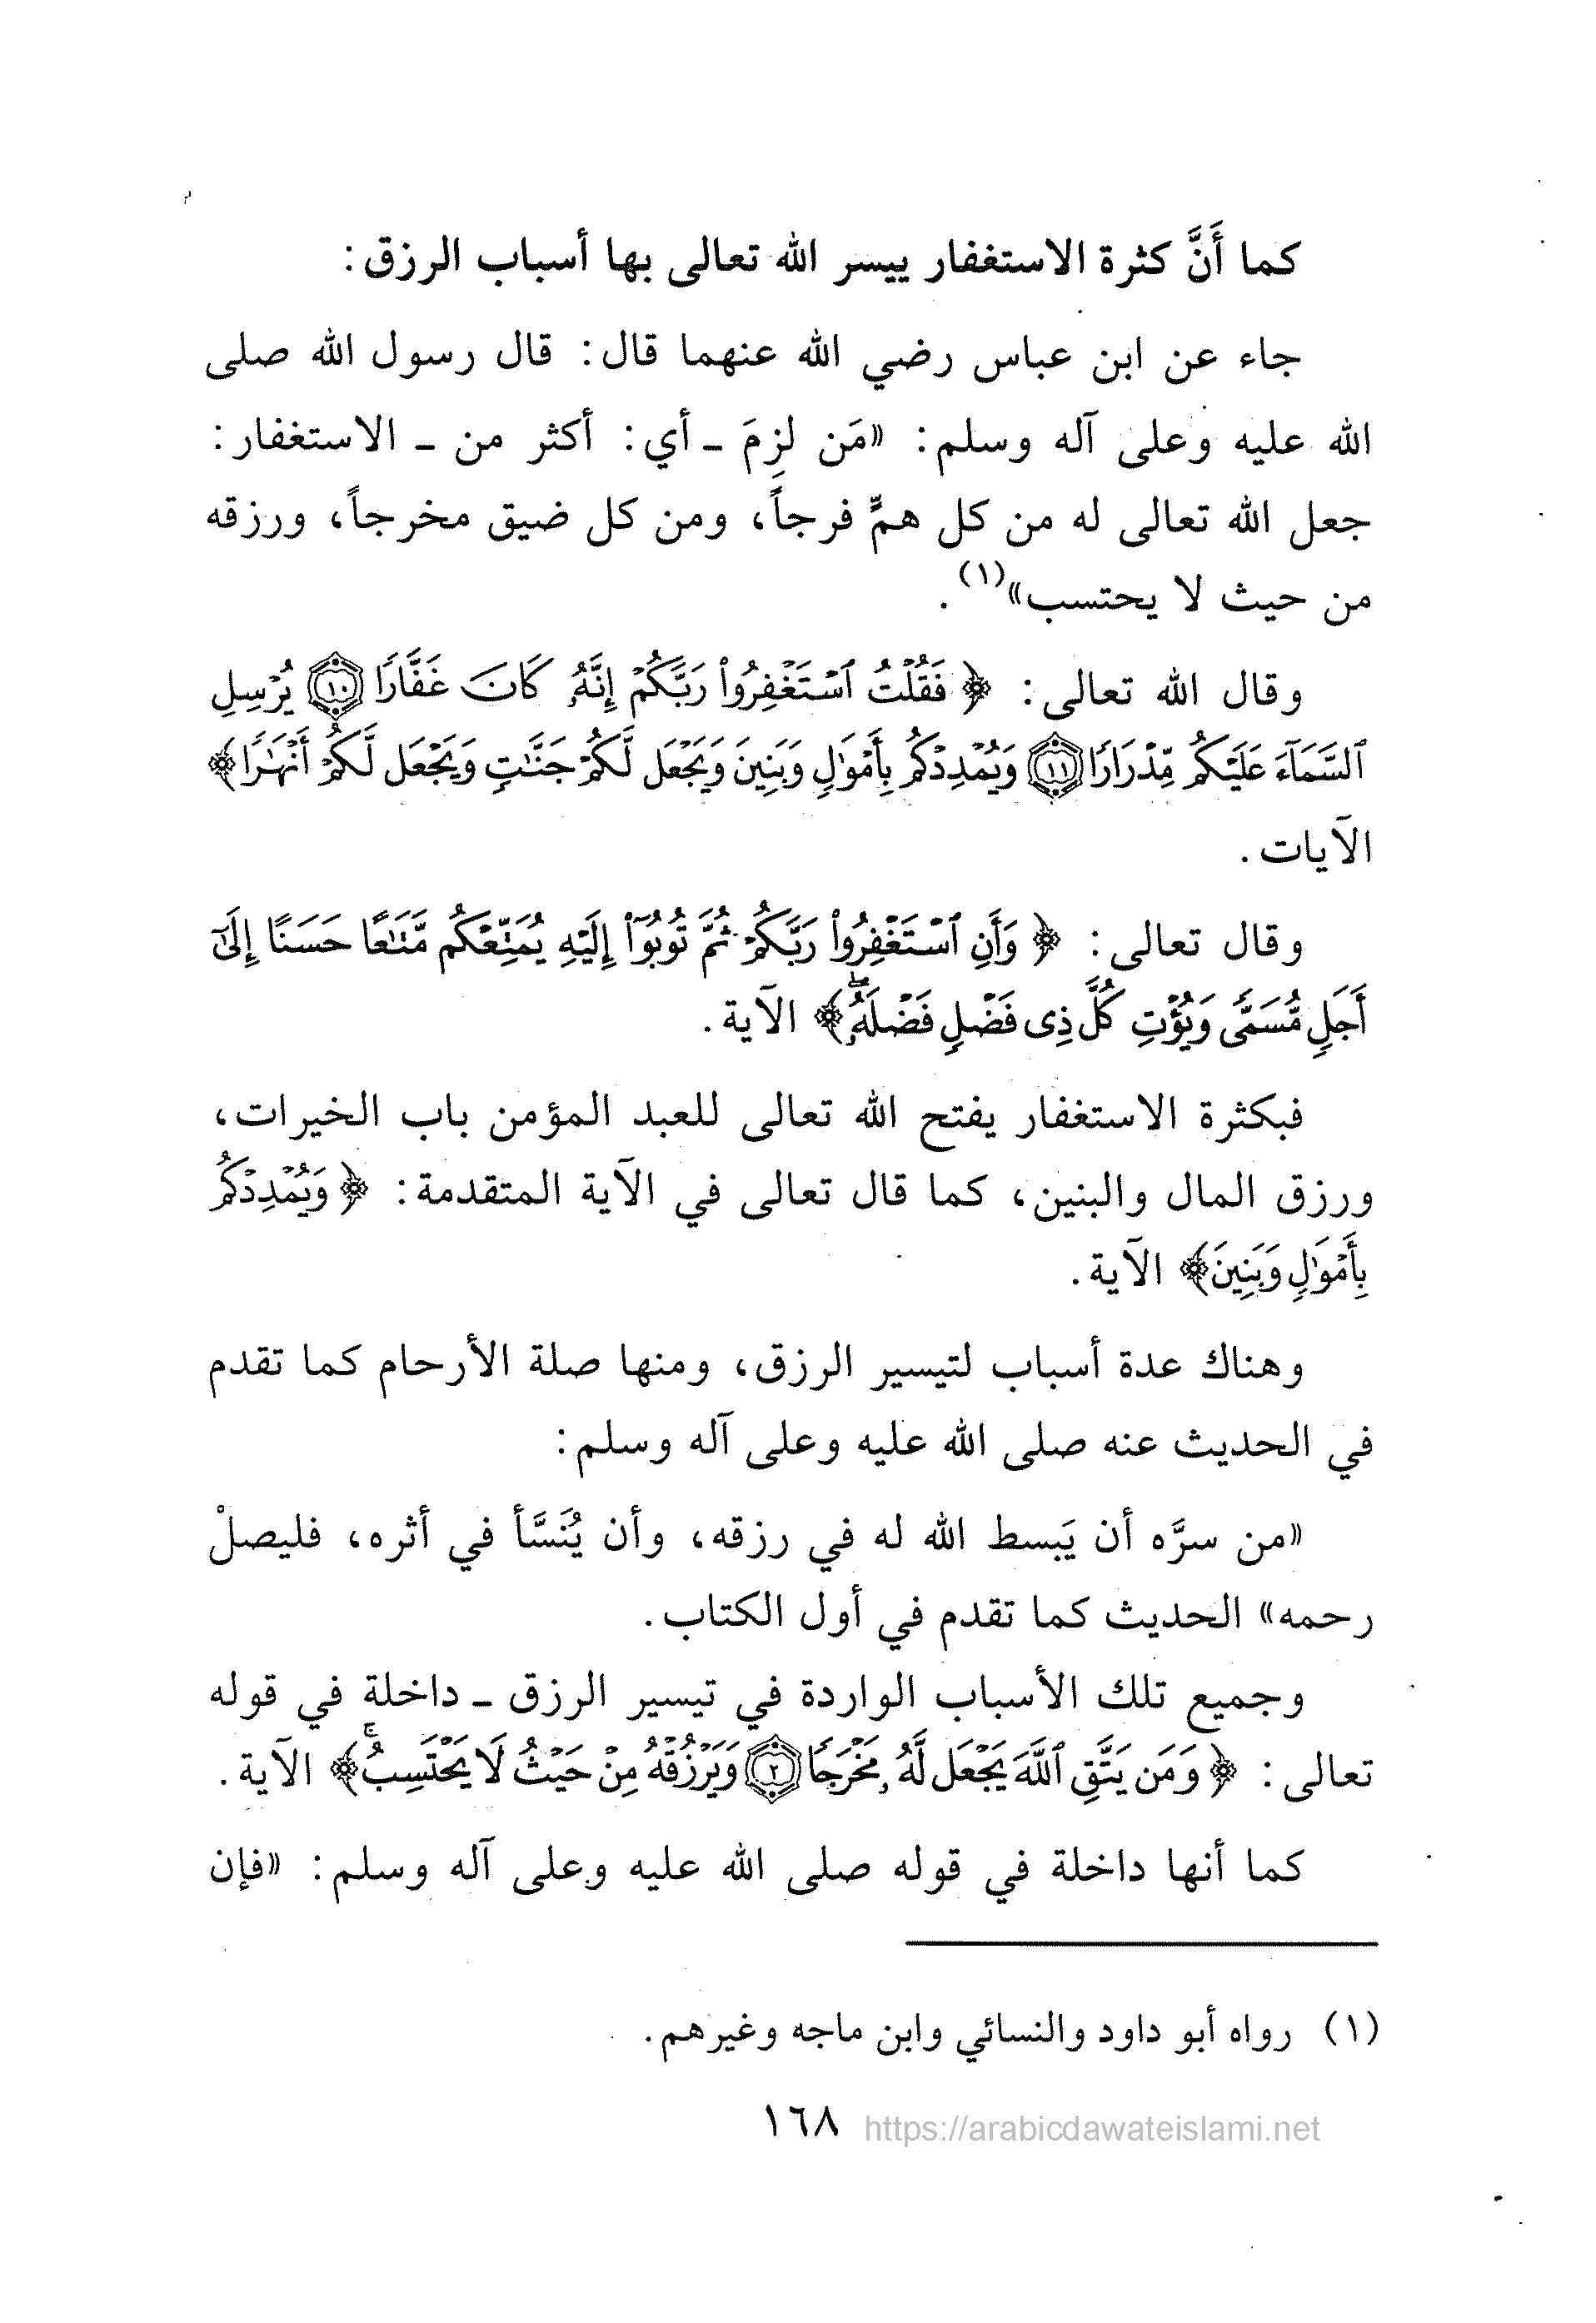 كما أَنَّ كثرة الاستغفار ييسر الله تعالى بها أسباب الرزق:
جاء عن ابن عباس رضي الله عنهما قال: قال رسول الله صلى
الله عليه وعلى آله وسلم: «مَن لزِمَ ـ أي: أكثر من ـ الاستغفار:
جعل الله تعالى له من كل همٍّ فرجاً، ومن كل ضيق مخرجاً، ورزقه
من حيث لا يحتسب»(١).
وقال الله تعالى: ﴿فَقُلْتُ ٱسْتَغْفِرُوا۟ رَبَّكُمْ إِنَّهُۥ كَانَ غَفَّارًا ١٠ يُرْسِلِ
ٱلسَّمَآءَ عَلَيْكُم مِّدْرَارًا ١١ وَيُمْدِدْكُم بِأَمْوَٰلٍ وَبَنِينَ وَيَجْعَل لَّكُمْ جَنَّـٰتٍ وَيَجْعَل لَّكُمْ أَنْهَـٰرًا﴾
الآيات.
وقال تعالى: ﴿وَأَنِ ٱسْتَغْفِرُوا۟ رَبَّكُمْ ثُمَّ تُوبُوٓا۟ إِلَيْهِ يُمَتِّعْكُم مَّتَـٰعًا حَسَنًا إِلَىٰٓ
أَجَلٍ مُّسَمًّى وَيُؤْتِ كُلَّ ذِى فَضْلٍ فَضْلَهُۥۖ﴾ الآية.
فبكثرة الاستغفار يفتح الله تعالى للعبد المؤمن باب الخيرات،
ورزق المال والبنين، كما قال تعالى في الآية المتقدمة: ﴿وَيُمْدِدْكُم
بِأَمْوَٰلٍ وَبَنِينَ﴾ الآية.
وهناك عدة أسباب لتيسير الرزق، ومنها صلة الأرحام كما تقدم
في الحديث عنه صلى الله عليه وعلى آله وسلم:
«من سرَّه أن يَبسط الله له في رزقه، وأن يُنَسَّأ في أثره، فليصلْ
رحمه» الحديث كما تقدم في أول الكتاب.
وجميع تلك الأسباب الواردة في تيسير الرزق ـ داخلة في قوله
تعالى: ﴿وَمَن يَتَّقِ ٱللَّهَ يَجْعَل لَّهُۥ مَخْرَجًا ٢ وَيَرْزُقْهُ مِنْ حَيْثُ لَا يَحْتَسِبُۚ﴾ الآية.
كما أنها داخلة في قوله صلى الله عليه وعلى آله وسلم: «فإن
(١) رواه أبو داود والنسائي وابن ماجه وغيرهم.
١٦٨ https://arabicdawateislami.net